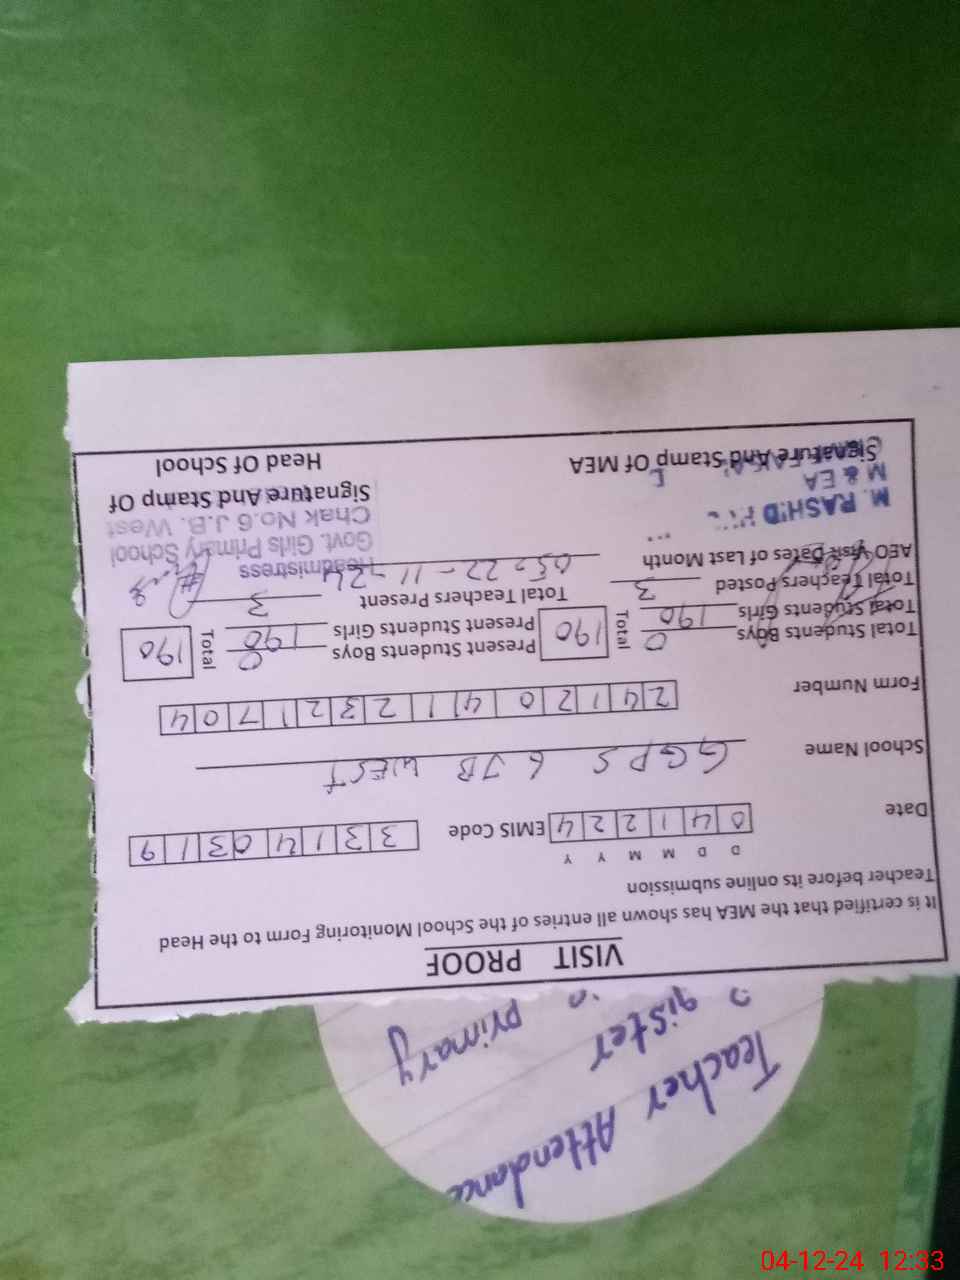 Teacher Attendance
gister in primary
VISIT PROOF
It is certified that the MEA has shown all entries of the School Monitoring Form to the Head
Teacher before its online submission
D D M M Y Y
Date 0 4 1 2 2 4 EMIS Code 3 3 1 4 0 3 1 9
School Name GGPS 6 JB WEST
Form Number 2 4 1 2 0 4 1 2 3 2 1 7 0 4
Total Students Boys 0 Total 190 Present Students Boys 0 Total 190
Total Students Girls 190 Present Students Girls 190
Total Teachers Posted 3 Total Teachers Present 3
AEO Visit Dates of Last Month 05, 22-11-24
Headmistress
Govt. Girls Primary School
Chak No.6 J.B. West
M. RASHID
M & EA
Signature And Stamp Of MEA
Signature And Stamp Of
Head Of School
04-12-24 12:33